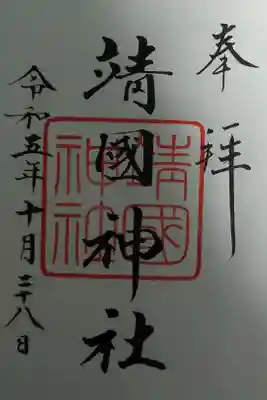 奉拝
靖國神社
令和五年十月二十八日
靖國
神社